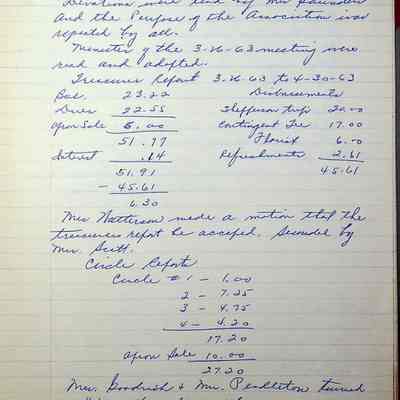 Devotions were read by Mrs Saunders
and the Purpose of the Association was
repeated by all.
Minutes of the 3-26-63 meeting were
read and adopted.
Treasures Report 3-26-63 to 4-30-63
Bal. 23.22 Disbursements
Dues 22.55 Shefferson trip 20.00
Apron Sale 6.00 Contingent Fee 17.00
51.77 Florist 6.00
Interest .14 Refreshments 2.61
51.91 45.61
- 45.61
6.30
Mrs Watterson made a motion that the
treasures report be accepted. Seconded by
Mrs. Scott.
Circle Reports
Circle #1 - 1.00
2 - 7.25
3 - 4.75
4 - 4.20
17.20
Apron Sale 10.00
27.20
Mrs. Goodrich & Mrs. Pendleton turned